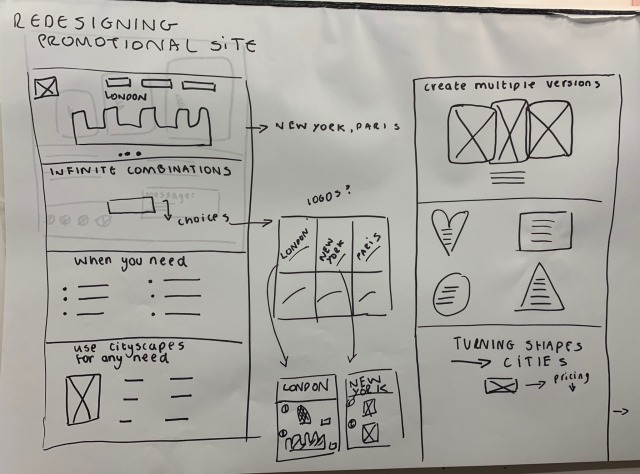 REDESIGNING
PROMOTIONAL SITE
LONDON
NEW YORK, PARIS
INFINITE COMBINATIONS
message:
choices
when you need
use cityscapes
for any need
LOGOS?
LONDON
NEW
YORK
PARIS
LONDON
NEW
YORK
create multiple versions
TURNING SHAPES
CITIES
pricing